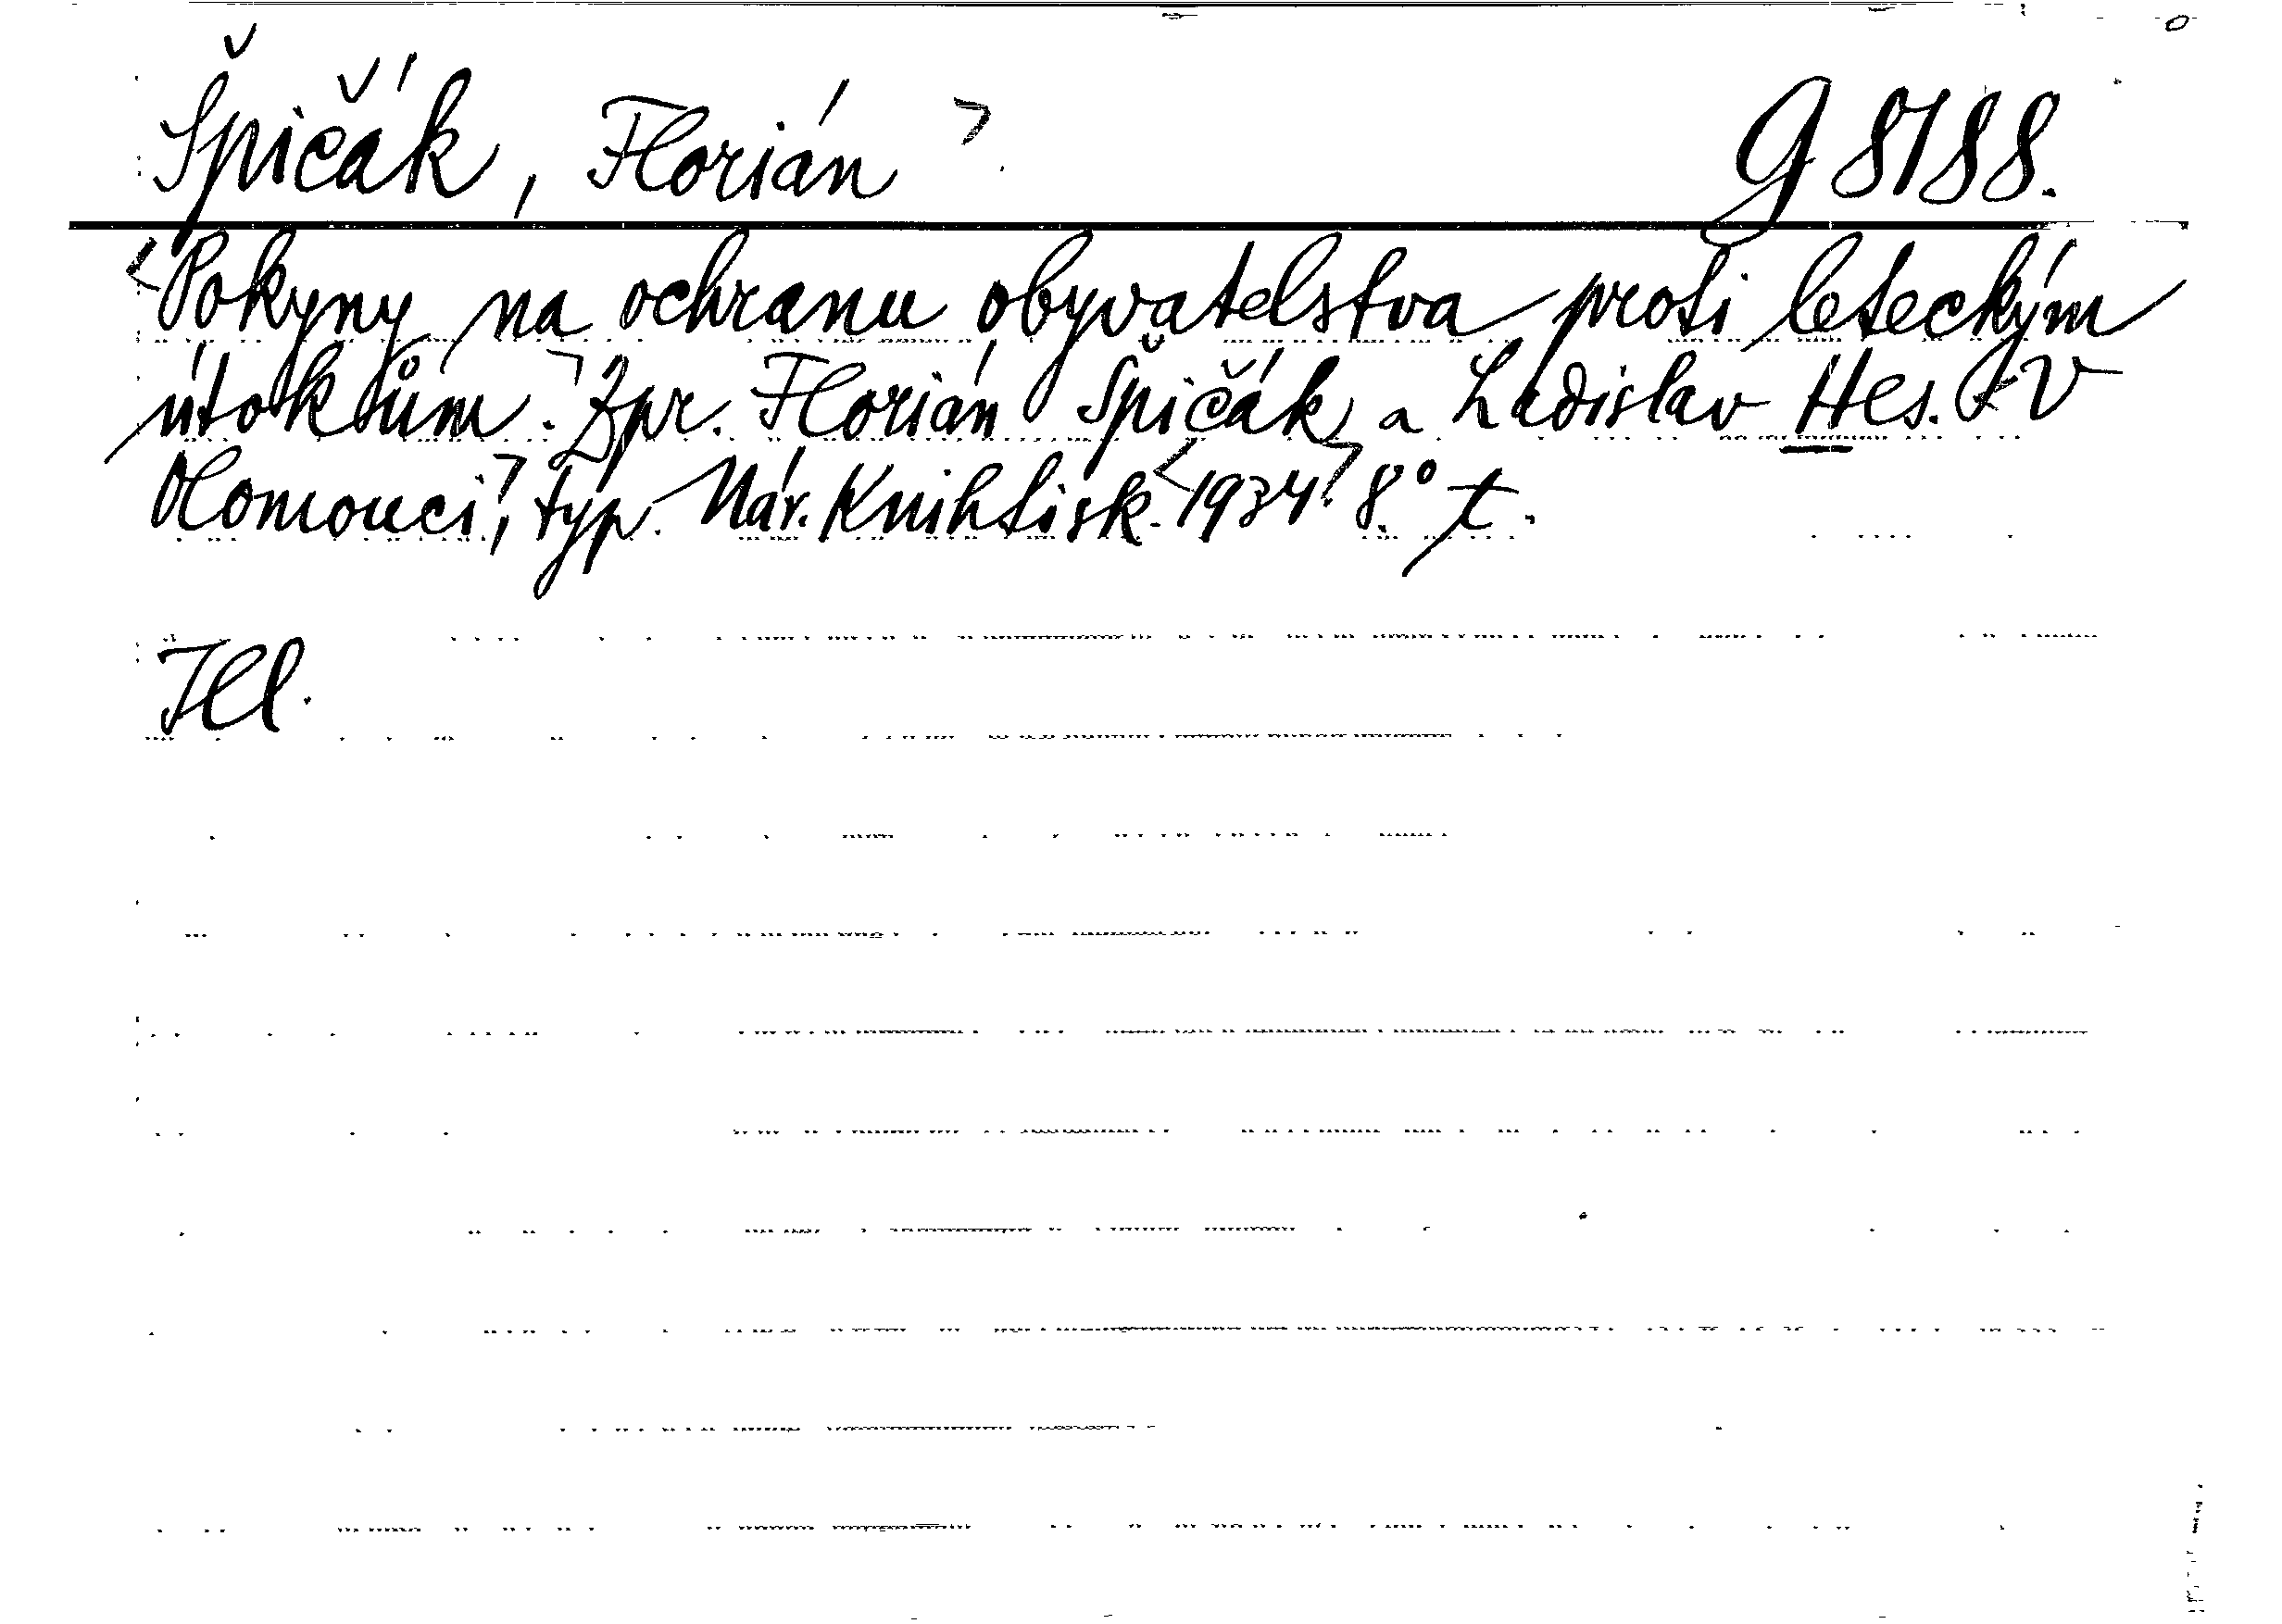 Špičák, Florián G 8188.
Pokyny na ochranu obyvatelstva proti leteckým
útokům. Zpr. Florián Špičák a Ladislav Hes. V
Olomouci, typ. Nár. Knihtisk. 1934. 8° t.
Ill.